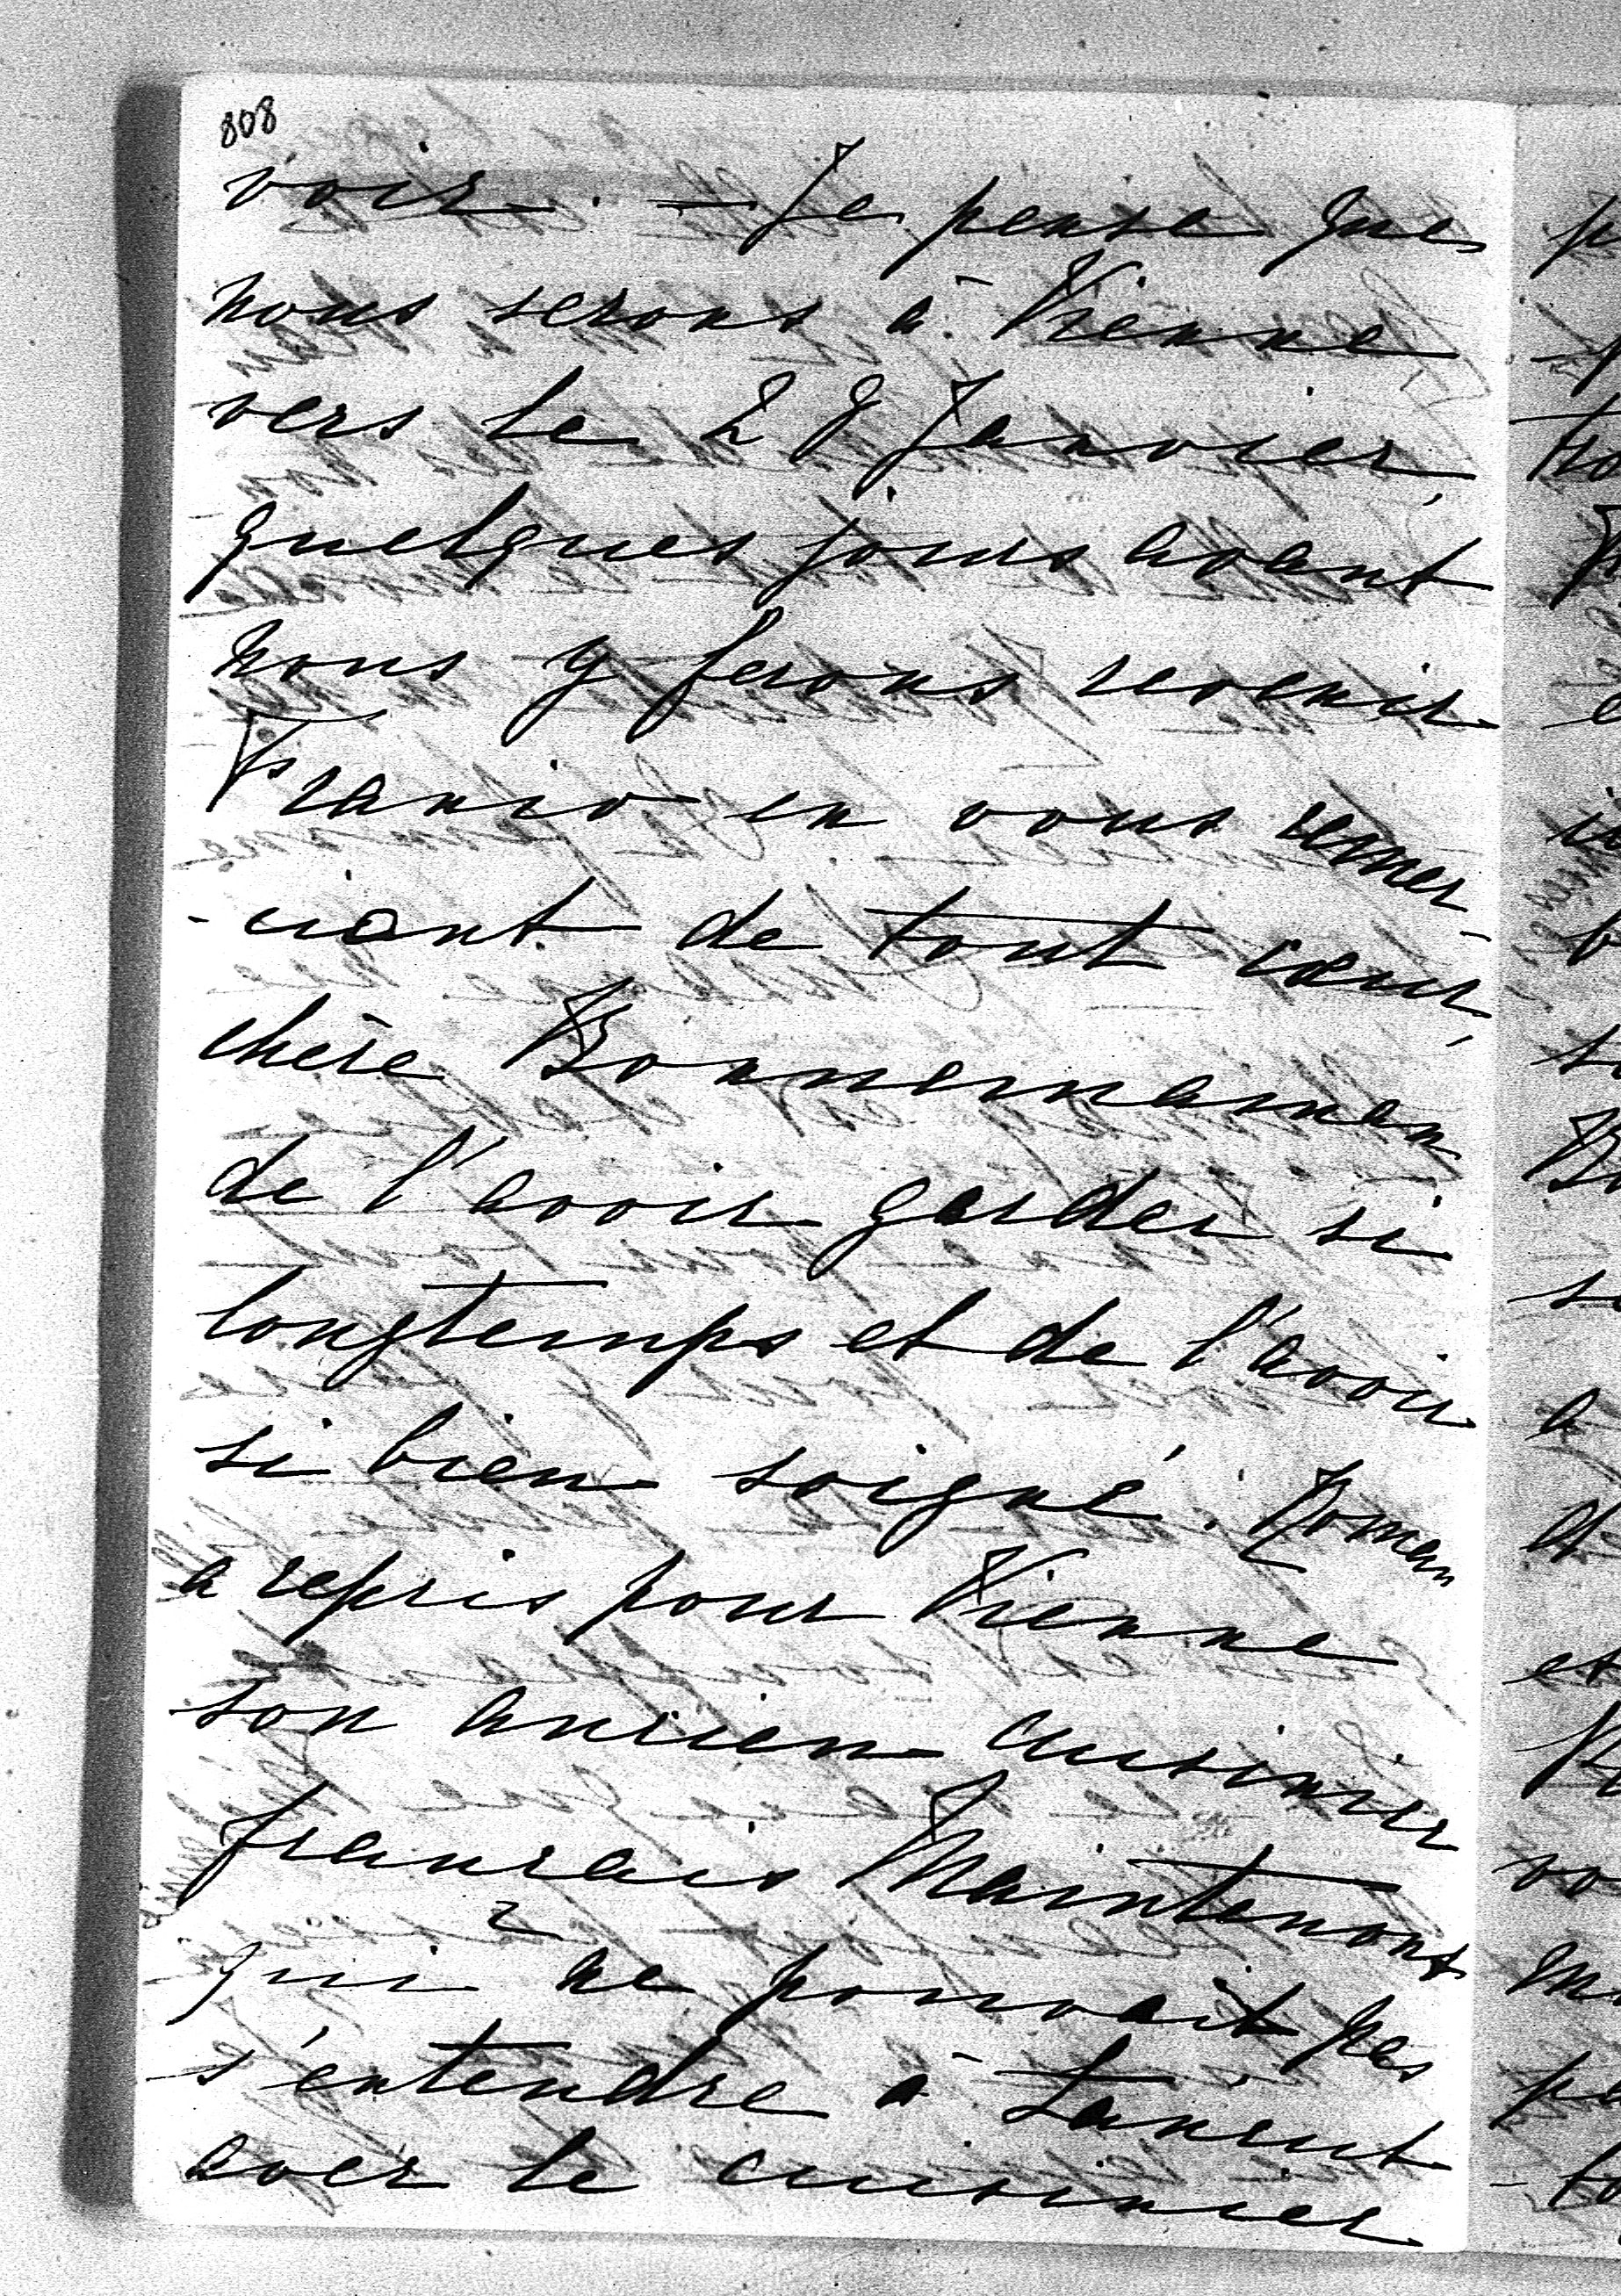 808
voir. — Je pense que
nous serons à Vienne
vers le 28 Janvier,
quelques jours avant
nous y ferons revenir
Franio en vous remer-
-ciant de tout cœur,
chère Bonnemaman
de l'avoir garder si
longtemps et de l'avoir
si bien soigné. Roman
a repris pour Vienne
son ancien cuisinier
français Maintenons
qui ne pouvait pas
s'entendre à Łańcut
avec le cuisinier